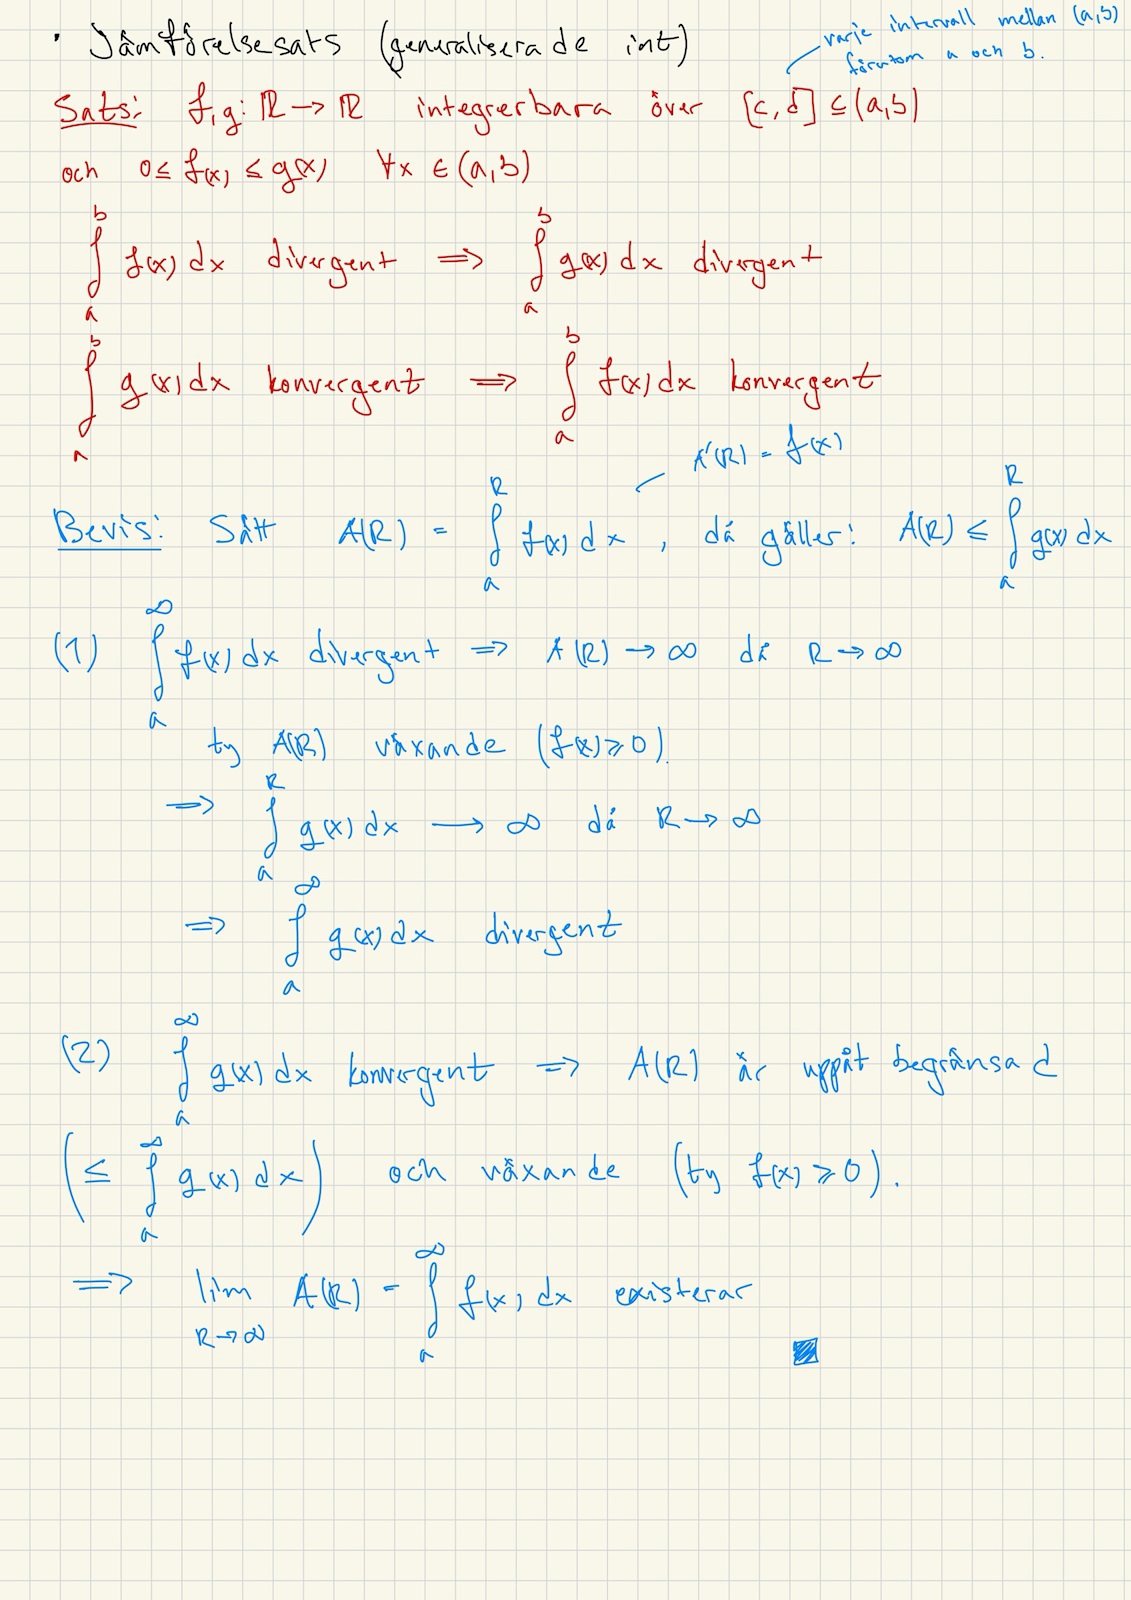 • Jämförelsesats (generaliserade int)
varje intervall mellan (a,b)
förutom a och b.
Sats: f,g: ℝ → ℝ integrerbara över [c,d] ⊆ (a,b)
och 0 ≤ f(x) ≤ g(x) ∀x ∈ (a,b)
∫_a^b f(x) dx divergent ⇒ ∫_a^b g(x) dx divergent
∫_a^b g(x) dx konvergent ⇒ ∫_a^b f(x) dx konvergent
A'(R) = f(x)
Bevis: Sätt A(R) = ∫_a^R f(x) dx, då gäller: A(R) ≤ ∫_a^R g(x) dx
(1) ∫_a^∞ f(x) dx divergent ⇒ A(R) → ∞ då R → ∞
ty A(R) växande (f(x) ≥ 0).
⇒ ∫_a^R g(x) dx → ∞ då R → ∞
⇒ ∫_a^∞ g(x) dx divergent
(2) ∫_a^∞ g(x) dx konvergent ⇒ A(R) är uppåt begränsad
(≤ ∫_a^∞ g(x) dx) och växande (ty f(x) ≥ 0).
⇒ lim_{R→∞} A(R) = ∫_a^∞ f(x) dx existerar